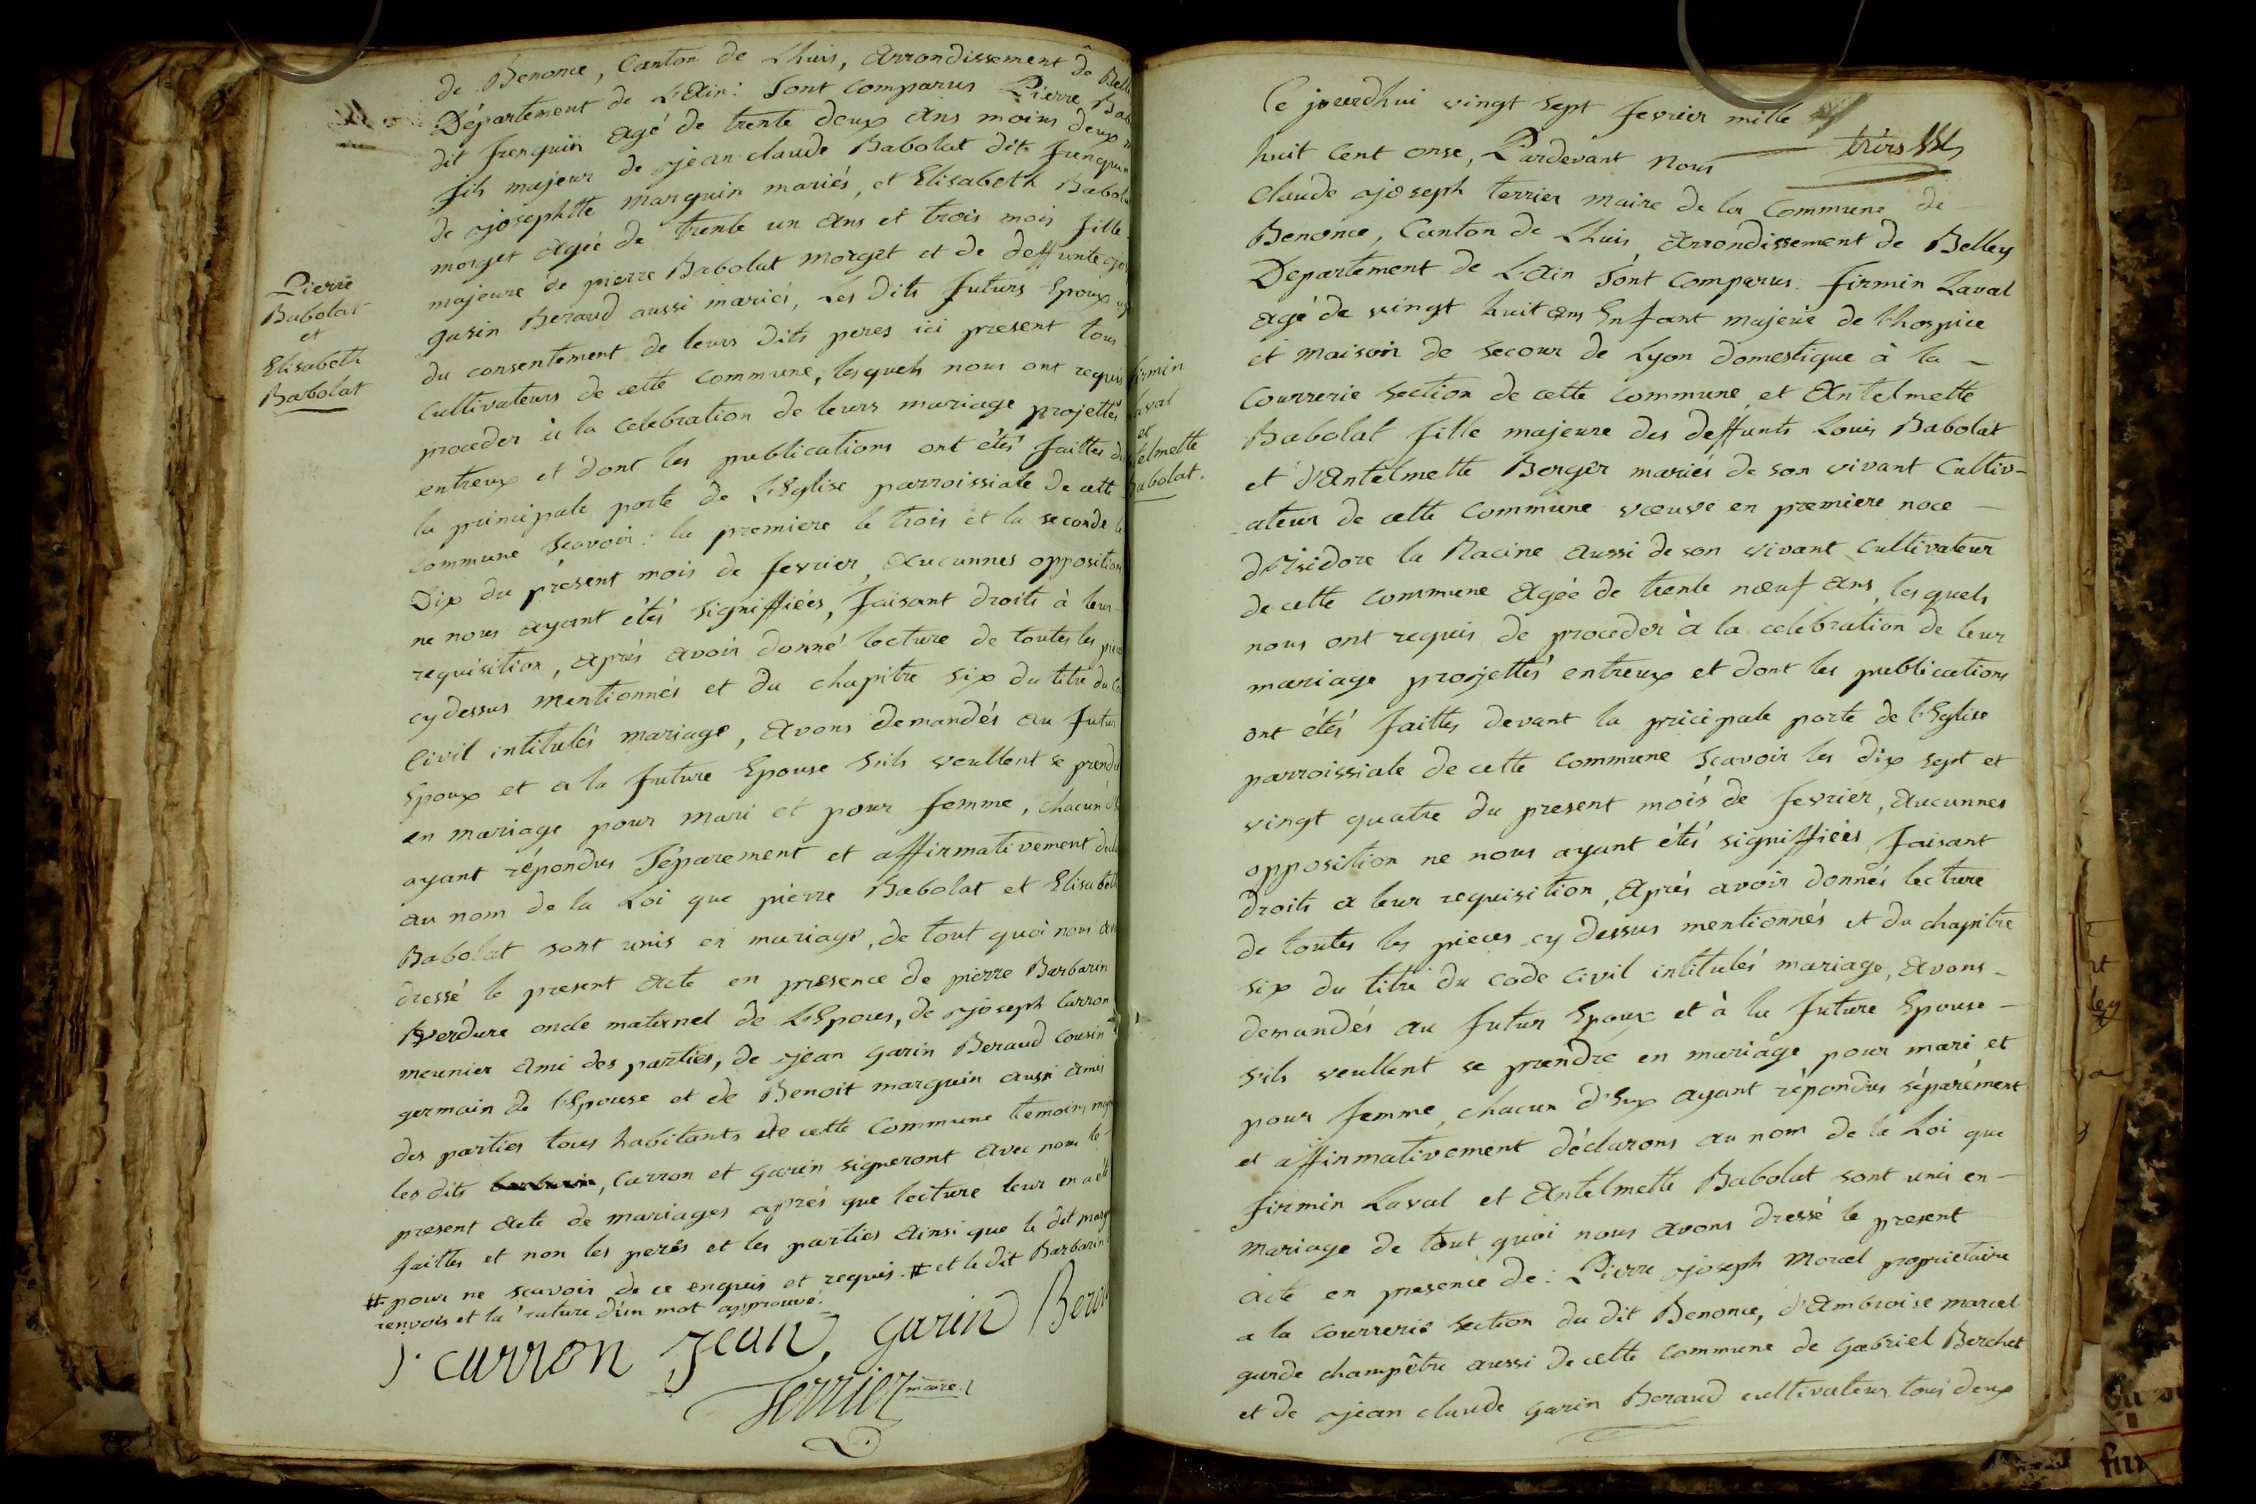 de Benonce, Canton de Lhuis, arrondissement de Belle
Département de L'Ain: Sont comparus Pierre Bab
dit frenquin agé de trente deux ans moins deux
fils majeur de jean claude Babolat dit frenquin
de josephtte marquin mariés, et Elisabeth Babola
morget agée de trente un ans et trois mois fille
majeure de pierre Babolat morget et de deffunte
garin Beraud aussi mariés, Les dits futurs Epoux
du consentement de leurs dits peres ici present tous
Cultivateurs de cette commune, lesquels nous ont requis
proceder à la celebration de leurs mariage projettés
entreux et dont les publications ont étés faittes d
la principale porte de L'Eglise parroissiale de cette
commune Scavoir: la premiere le trois et la seconde le
Dix du present mois de fevrier, aucunnes opposition
ne nous ayant étés signiffiées, faisant droits à leur
requisition, aprés avoir donné lecture de toutes les piec
cy dessus mentionnés et du chapitre six du titre du Co
Civil intitulés mariage, avons demandés au futur
Epoux et a la future Epouse Sils veullent se prendre
en mariage pour mari et pour femme, chacun d'
ayant répondus Séparement et affirmativement décla
au nom de la Loi que pierre Babolat et Elisabeth
Babolat sont unis en mariage, de tout quoi nous av
dressé le present acte en presence de pierre Barbarin
Verdure oncle maternel de L'Epoux, de joseph Carron
meunier ami des parties, de jean garin Beraud cousin
germain de l'Epouse et de Benoit marquin aussi ami
des parties tous habitants de cette commune temoins maj
les dits barbarin, Carron et garin signeront avec nous le
present acte de mariages aprés que lecture leur en a été
faittes et non les perés et les parties ainsi que le dit marq
# pour ne scavoir de ce enquis et requis. # et le dit Barbarin
renvois et la rature d'un mot approuvé.
J. carron Jean garin Berau
Terrier maire
Pierre
Babolat
et
Elisabeth
Babolat
Ce jourdhui vingt sept fevrier mille
huit cent onse, Pardevant Nous
Claude joseph terrier maire de la Commune de
Benonce, Canton de Lhuis, arrondissement de Belley
Departement de L'Ain Sont comparus: firmin Laval
agé de vingt huit ans Enfant majeur de l'hospice
et maison de secour de Lyon domestique à la
Courrerie section de cette commune et Antelmette
Babolat fille majeure des deffunts Louis Babolat
et d'Antelmette Berger mariés de son vivant Cultiv-
ateur de cette commune vœuve en premiere noce
d'Isidore la Racine aussi de son vivant Cultivateur
de cette commune agée de trente nœuf ans, lesquels
nous ont requis de proceder à la celébration de leur
mariage projettés entreux et dont les publications
ont étés faittes devant la pricipale porte de l'Eglise
parroissiale de cette commune Scavoir les dix sept et
vingt quatre du present mois de fevrier, aucunnes
opposition ne nous ayant étés signiffiées, faisant
droits a leur requisition, Aprés avoir donnés lecture
de toutes les pieces cy dessus mentionnés et du chapitre
six du titre du code civil intitulés mariage, avons
demandés au futur Epoux et à la future Epouse
sils veullent se prendre en mariage pour mari et
pour femme, chacun d'Eux ayant répondus séparément
et affirmativement déclarons au nom de la Loi que
firmin Laval et Antelmette Babolat sont unis en
mariage de tout quoi nous avons dressé le present
acte en presence de: Pierre joseph morel proprietaire
a la courrerie section du dit Benonce, d'Ambroise marcel
garde champêtre aussi de cette commune de gabriel Berchet
et de jean claude garin Beraud cultivateurs tous deux
irmin
aval
et
elmette
abolat.